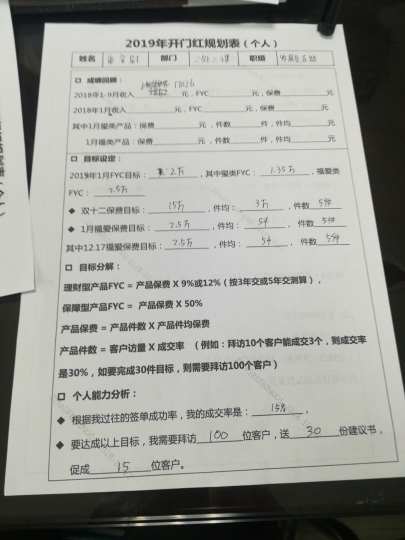 2019年开门红规划表（个人）
姓名 部门 二部二课 职级
□ 成绩回顾：
17026
2018年1-9月收入 元，FYC 元，保费 元
2018年1月收入 元，FYC 元，保费 元
其中1月玺类产品：保费 元，件数 件，件均 元
1月福类产品：保费 元，件数 件，件均 元
□ 目标设定：
2019年1月FYC目标： 2万 ，其中玺类FYC： 1.35万 ，福爱类
FYC： 2.5万
◆ 双十二保费目标： 15万 ，件均： 3万 ，件数 5件
◆ 1月福爱保费目标： 2.5万 ，件均： 5千 ，件数 5件
其中12.17福爱保费目标： 2.5万 ，件均： 5千 ，件数 5件
□ 目标分解：
理财型产品FYC = 产品保费 X 9%或12%（按3年交或5年交测算），
保障型产品FYC = 产品保费 X 50%
产品保费 = 产品件数 X 产品件均保费
产品件数 = 客户访量 X 成交率 （例如：拜访10个客户能成交3个，则成交率
是30%，如要完成30件目标，则需要拜访100个客户）
□ 个人能力分析：
◆ 根据我过往的签单成功率，我的成交率是： 15% ，
◆ 要达成以上目标，我需要拜访 100 位客户，送 30 份建议书，
促成 15 位客户。